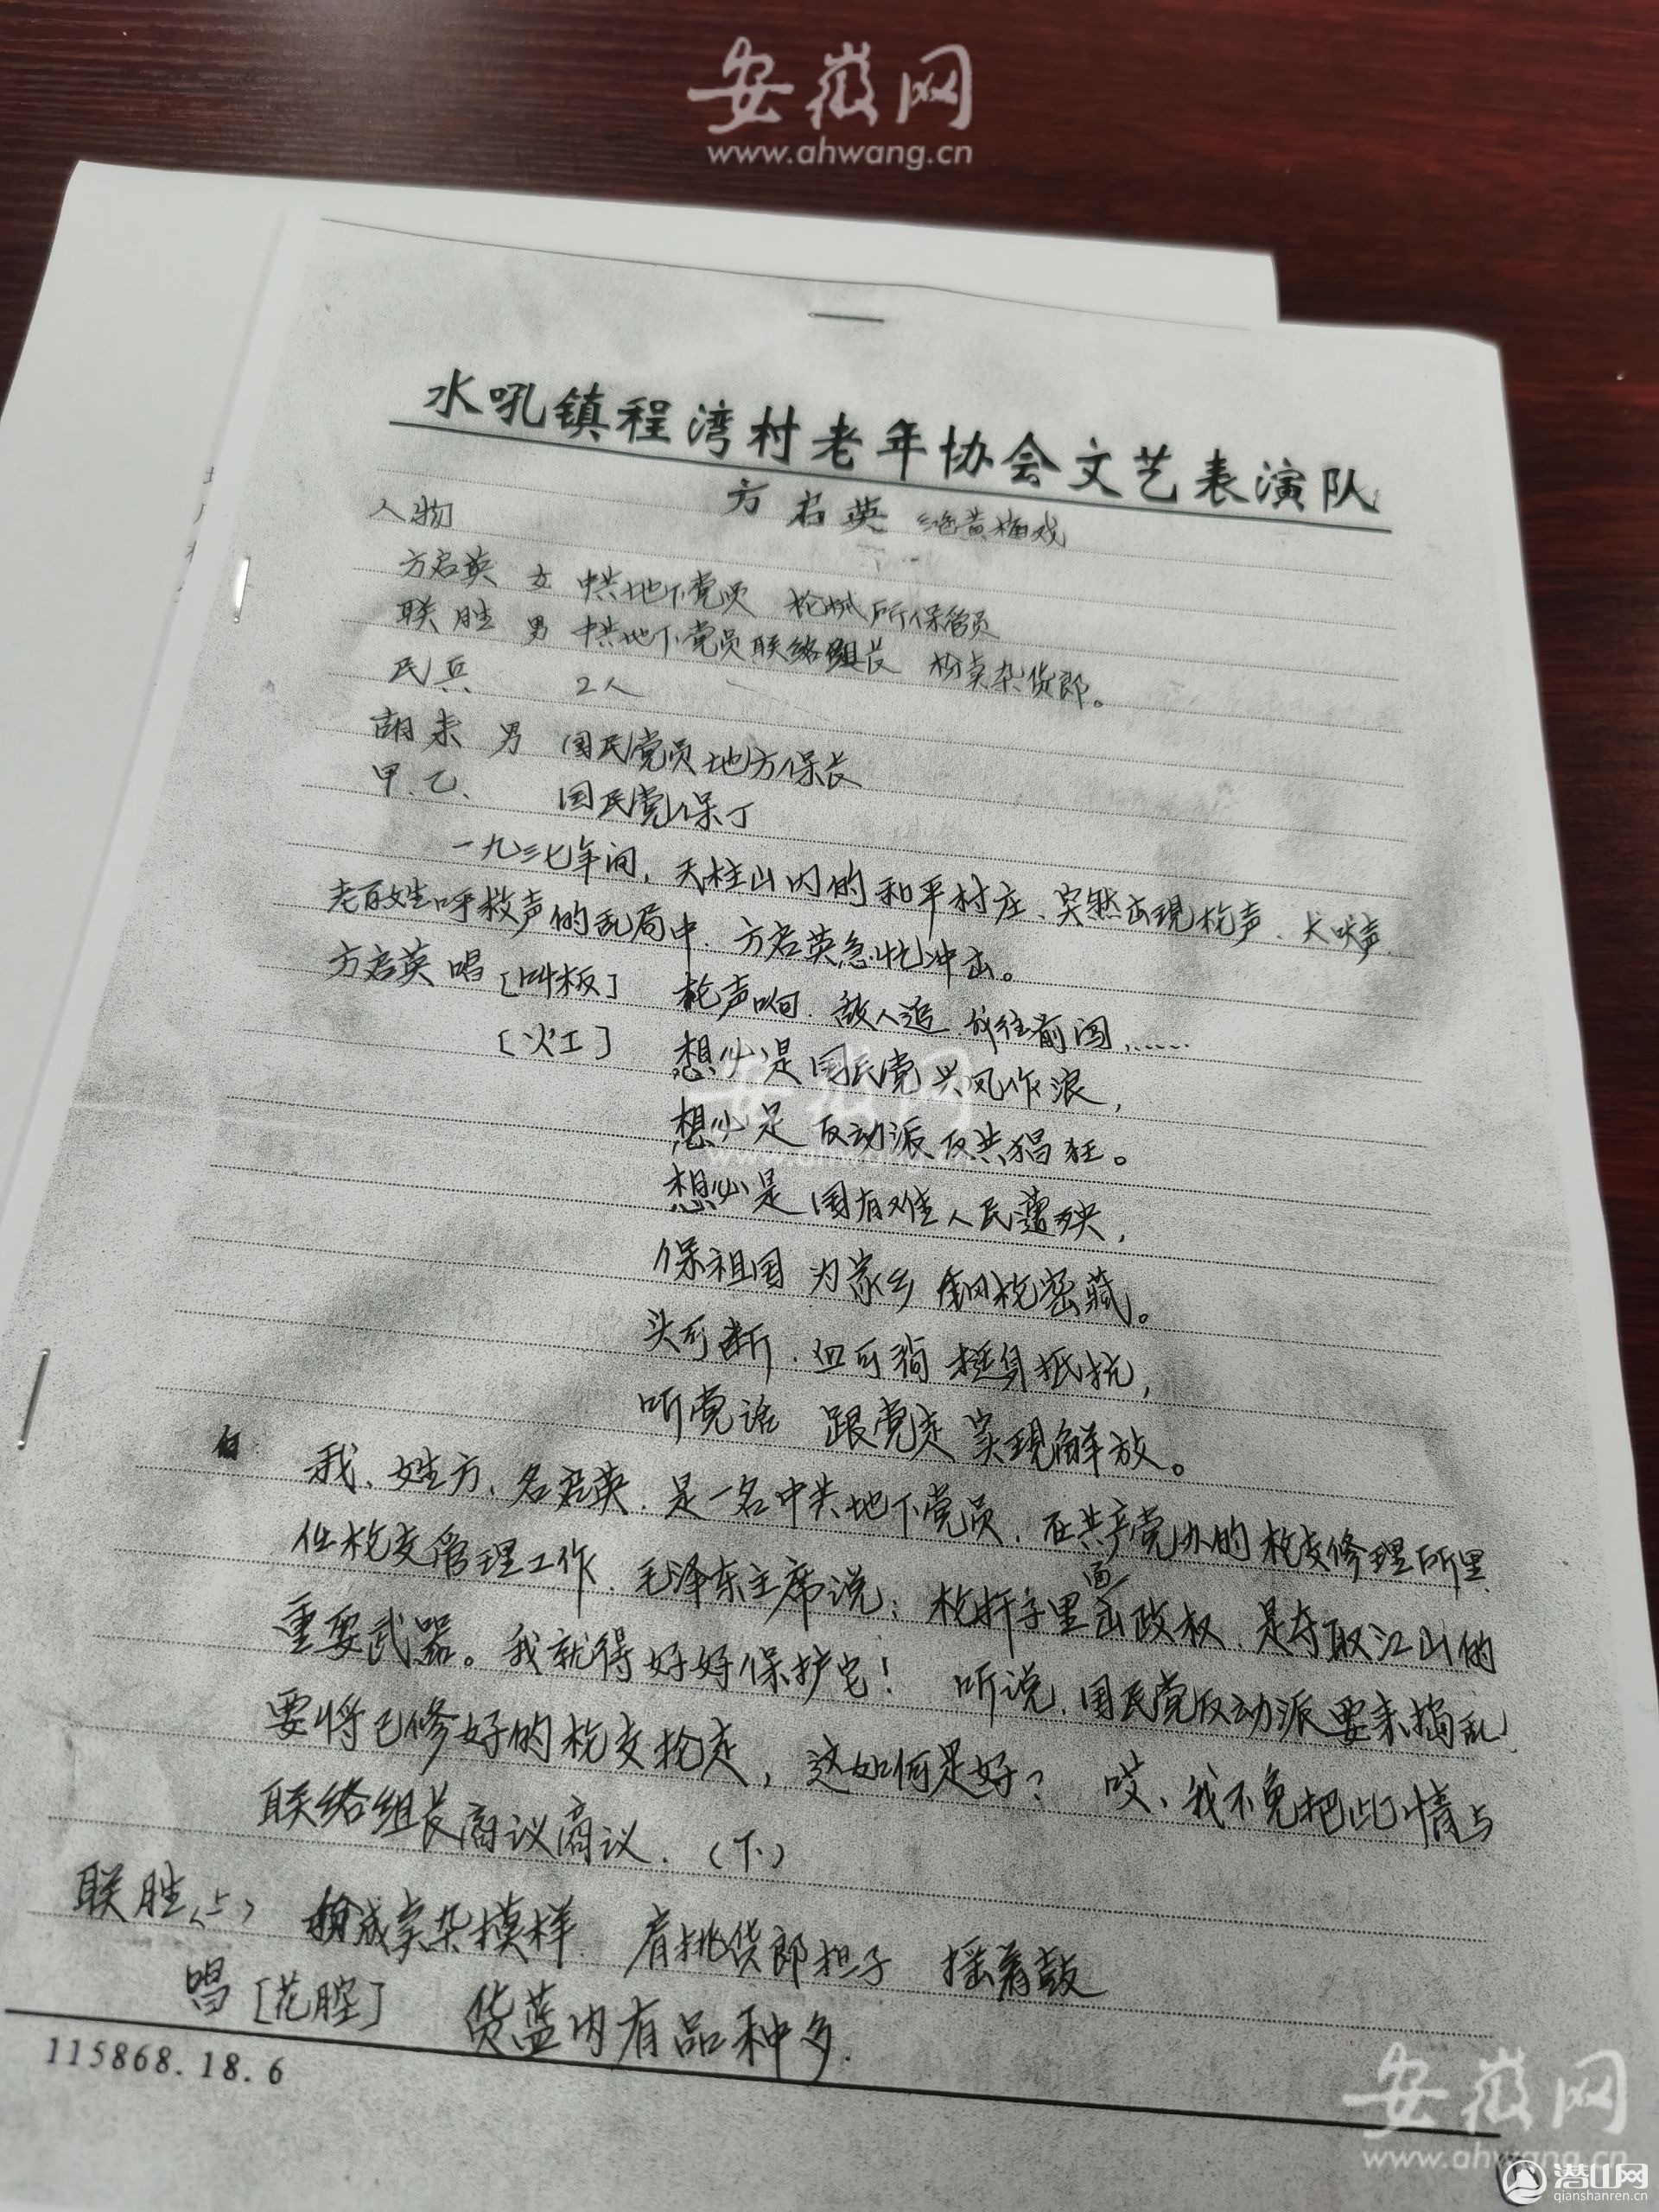 安徽网
www.ahwang.cn
水吼镇程湾村老年协会文艺表演队
方启英 黄梅戏
人物
方启英 女 中共地下党员 枪械所保管员
联胜 男 中共地下党员联络组长 扮卖杂货郎。
民兵 2人
胡来 男 国民党员地方保长
甲.乙、 国民党保丁
一九三七年间，天柱山内的和平村庄、突然出现枪声、犬吠声、
老百姓呼救声的乱局中、方启英急忙冲出。
方启英 唱 [叫板] 枪声响、敌人追、我往前闯……
[火工] 想必是国民党兴风作浪，
想必是 反动派反共猖狂。
想必是 国有难人民遭殃，
保祖国 为家乡 钢枪密藏。
头可断、血可淌 挺身抵抗，
听党话 跟党走 实现解放。
白: 我、姓方、名启英、是一名中共地下党员、在共产党办的枪支修理所里、
任枪支管理工作、毛泽东主席说：枪杆子里面出政权、是夺取江山的
重要武器。我就得好好保护它！ 听说、国民党反动派要来捣乱、
要将已修好的枪支抢走，这如何是好？ 哎、我不免把此情与
联络组长商议商议、（下）
联胜（上） 扮成卖杂模样、肩挑货郎担子 摇着鼓
唱 [花腔] 货蓝内有品种多、
115868.18.6
安徽网
www.ahwang.cn
安徽网
www.ahwang.cn
潜山网
qianshanren.cn